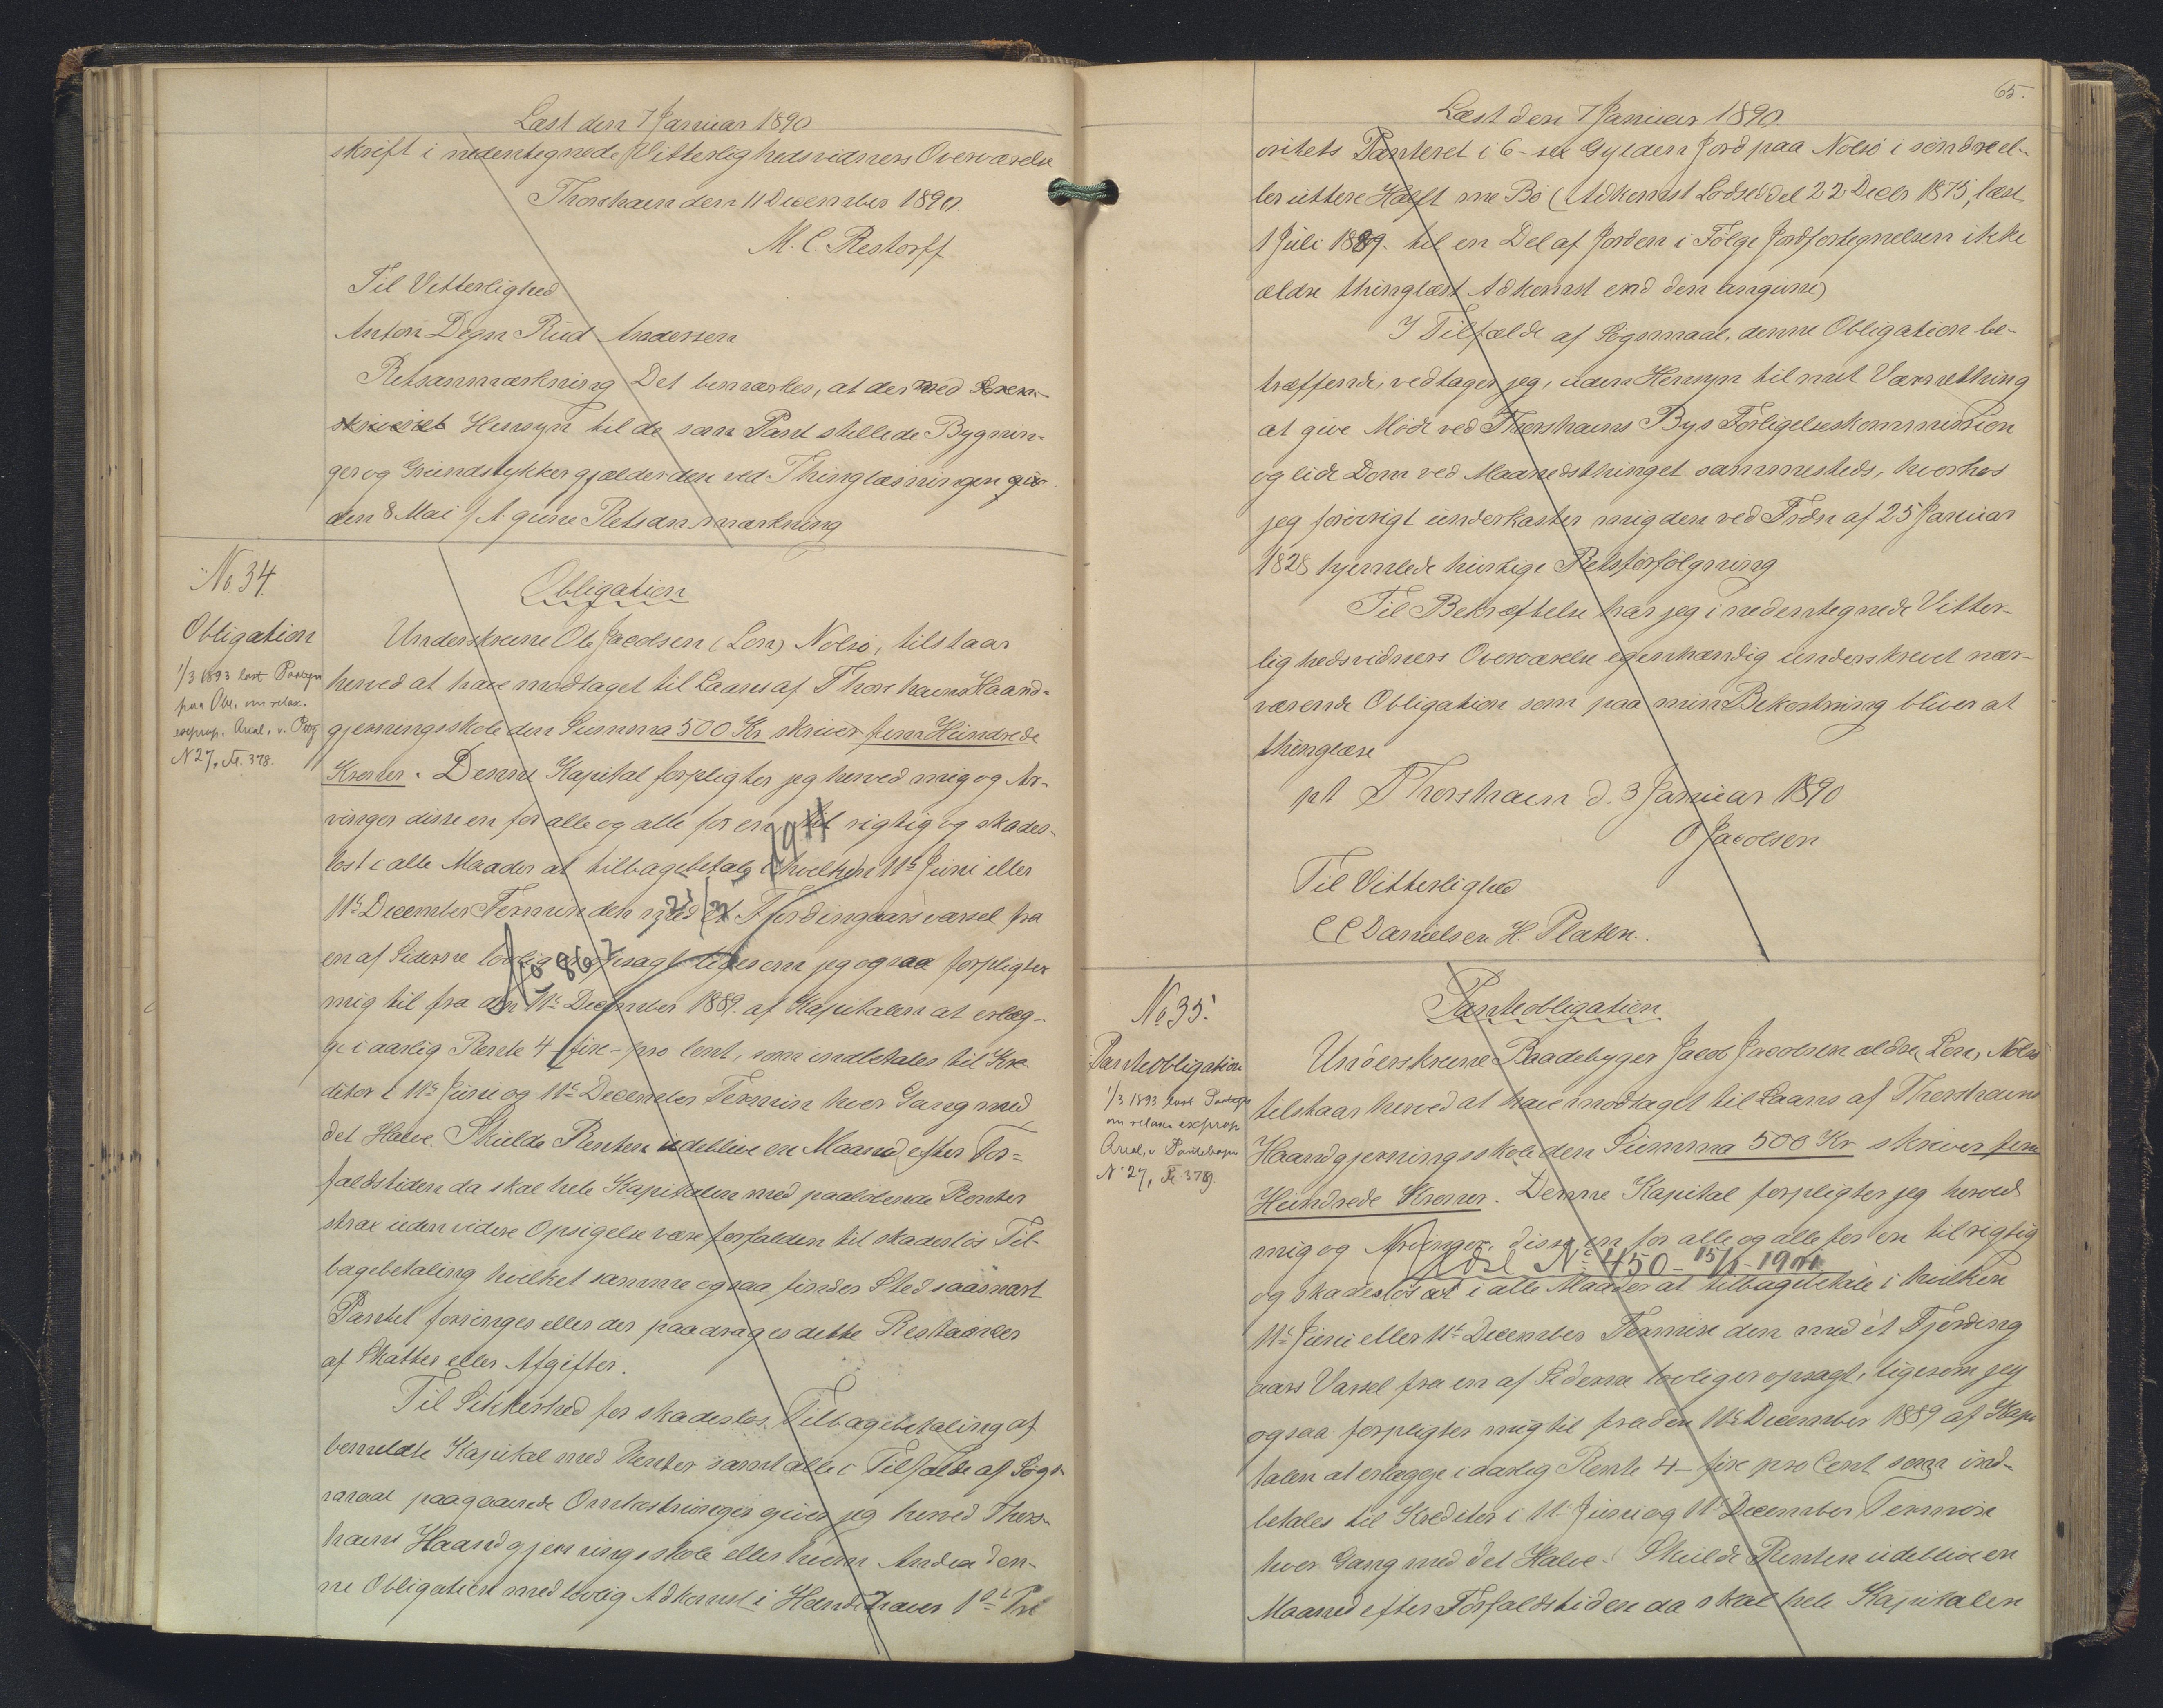 Læst den 7 Januar 1890
skrift i nedentegnede Vitterlighedsvidners Overværelse
Thorshavn den 11 December 1890.
M. C. Restorff
Til Vitterlighed
Anton Degn Rud Andersen
Retsanmærkning Det bemærkes, at der med
Hensyn til de som Pant stillede Bygnin-
ger og Grundstykker gjælder den ved Thinglæsningen
den 8 Mai f. A. givne Retsanmærkning
No 34.
Obligation
1/3 1893 læst Paategn
paa Obl. om relax.
exprop. Areal, v. Prtg
N 27, Fl. 378.
Obligation
Underskrevne Ole Jacobsen (Lon) Nolsö, tilstaar
herved at have modtaget til Laans af Thorshavns Haand-
gjerningsskole den Summa 500 Kr skriver fem Hundrede
Kroner. Denne Kapital forpligter jeg herved mig og Ar-
vinger disse en for alle og alle for en til rigtig og skades-
löst i alle Maader at tilbagebetale i hvilken 11te Juni eller
11te December Termin den med et Fjerdingaars varsel fra
en af Siderne lovlig opsagt ligesom jeg ogsaa forpligter
mig til fra den 11te December 1889. af Kapitalen at erlæg-
ge i aarlig Rente 4 - fire - pro Cent, som indbetales til Kre-
ditor i 11te Juni og 11te December Termin hver Gang med
det Halve. Skulde Renten udeblive en Maaned efter For-
faldstiden da skal hele Kapitalen med paalöbende Renter
strax uden videre Opsigelse være forfalden til skadeslös Til-
bagebetaling hvilket samme ogsaa finder Sted saasnart
Pantet forringes eller der paadrages dette Restancer
af Skatter eller Afgifter.
Til Sikkerhed for skadeslös Tilbagebetaling af
bemeldte Kapital med Renter samt alle i Tilfælde af Sögs-
maal paagaaende Omkostninger giver jeg herved Thors-
havns Haandgjerningsskole eller hvem Anden den-
ne Obligation med lovlig Adkomst i Hænde haver 1ste Pri
65.
Læst den 7 Januar 1890.
oritets Panteret i 6 - sex Gylden Jord paa Nolsö i söndre el-
ler uttere Hälft me Bö (Adkomst Lodseddel 22 Decbr 1875, læst
1 Juli 1889. til en Del af Jorden i Fölge Jordfortegnelsen ikke
ældre thinglæst Adkomst end den angivne)
I Tilfælde af Sögsmaal, denne Obligation be-
træffende, vedtager jeg, uden Hensyn til mit Værnething
at give Möde ved Thorshavns Bys Forligelseskommission
og lide Dom ved Maanedsthinget sammesteds, hvorhos
jeg forövrigt underkaster mig den ved Frdn af 25 Januar
1828 hjemlede hurtige Retsforfölgning
Til Bekræftelse har jeg i nedentegnede Vitter-
lighedsvidners Overværelse egenhændig underskrevet nær-
værende Obligation som paa min Bekostning bliver at
thinglæse
pt Thorshavn d. 3 Januar 1890
O Jacobsen
Til Vitterlighed
C C Danielsen H. Platen.
No 35.
Panteobligation
1/3 1893 læst Paategn
om relax. exprop
Areal, v Pantebogen
N 27, Fl 379.
Panteobligation
Underskrevne Baadebygger Jacob Jacobsen ældre, Lon, Nolsö
tilstaar herved at have modtaget til Laans af Thorshavns
Haandgjerningsskole den Summa 500 Kr skriver fem
Hundrede Kroner. Denne Kapital forpligter jeg herved
mig og Arvinger, disse en for alle og alle for en til rigtig
Udsl No 450 - 15/1 - 1901
og skadeslöst i alle Maader at tilbagebetale i hvilken
11te Juni eller 11te December Termin den med et Fjerding
aars Varsel fra en af Siderne lovlig er opsagt, ligesom jeg
ogsaa forpligter mig til fra den 11te December 1889 af Kapi
talen at erlægge i aarlig Rente 4 - fire pro Cent som ind-
betales til Kreditor i 11te Juni og 11te December Termin
hver Gang med det Halve. Skulde Renten udeblive en
Maaned efter Forfaldstiden da skal hele Kapitalen